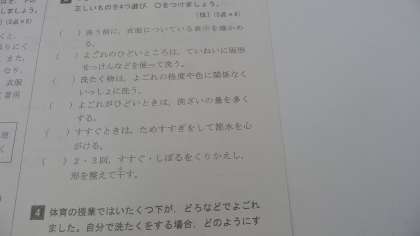 正しいものを4つ選び ○をつけましょう。
しましょう。
（5点×8）
〔技〕（5点×4）
（　）洗う前に、衣服についている表示を確かめ
る。
（　）よごれのひどいところは、ていねいに固形
せっけんなどを使って洗う。
（　）洗たく物は、よごれの程度や色に関係なく
いっしょに洗う。
（　）よごれがひどいときは、洗ざいの量を多く
する。
（　）すすぐときは、ためすすぎをして節水を心
がける。
（　）2・3回、すすぐ・しぼるをくりかえし、
形を整えて干す。
4 体育の授業ではいたくつ下が、どろなどでよごれ
ました。自分で洗たくをする場合、どのようにす